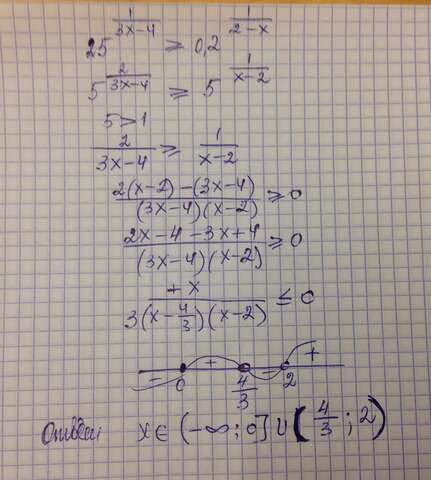 25^(1/(3x-4)) ⩾ 0,2^(1/(2-x))
5^(2/(3x-4)) ⩾ 5^(1/(x-2))
5>1
2/(3x-4) ⩾ 1/(x-2)
(2(x-2)-(3x-4))/((3x-4)(x-2)) ⩾ 0
(2x-4-3x+4)/((3x-4)(x-2)) ⩾ 0
(+x)/(3(x-4/3)(x-2)) ≤ 0
− + − +
0 4/3 2
Ответ: x∈(-∞;0]∪(4/3;2)